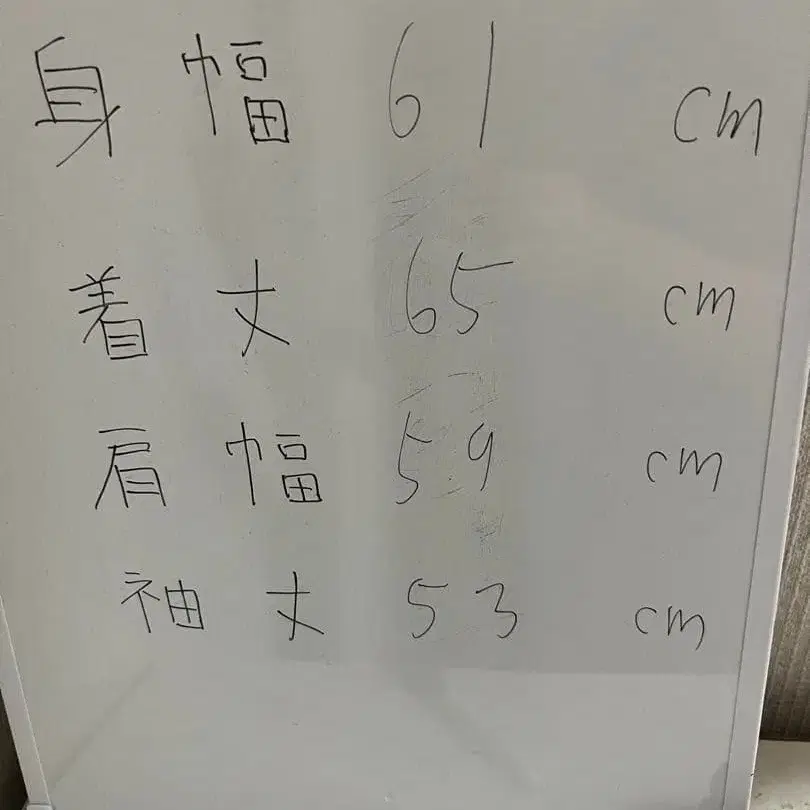 身幅 61 cm
着丈 65 cm
肩幅 59 cm
袖丈 53 cm